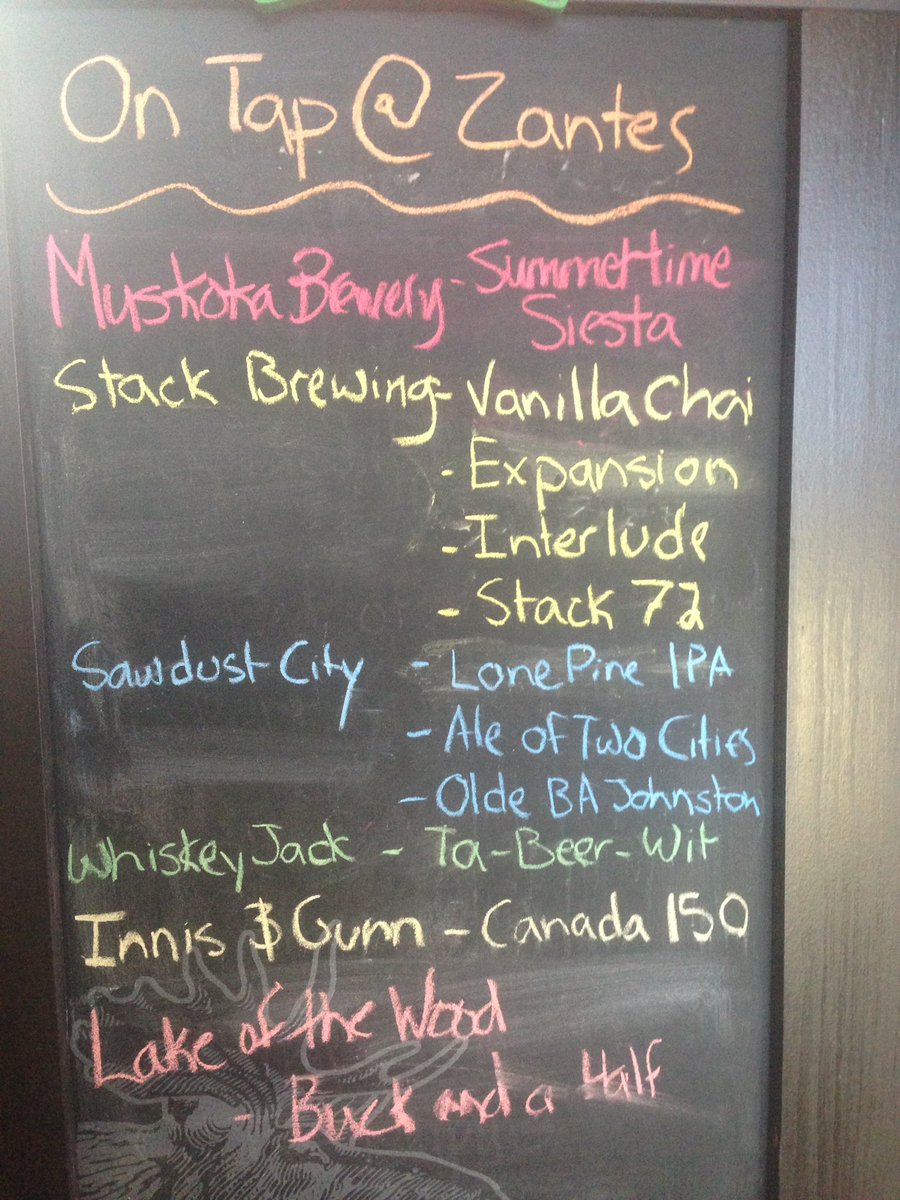 On Tap @ Zantes
Muskoka Brewery - Summertime
Siesta
Stack Brewing - Vanilla Chai
- Expansion
- Interlude
- Stack 72
Sawdust City - Lone Pine IPA
- Ale of Two Cities
- Olde BA Johnston
Whiskey Jack - Ta-Beer-Wit
Innis & Gunn - Canada 150
Lake of the Wood
- Buck and a Half